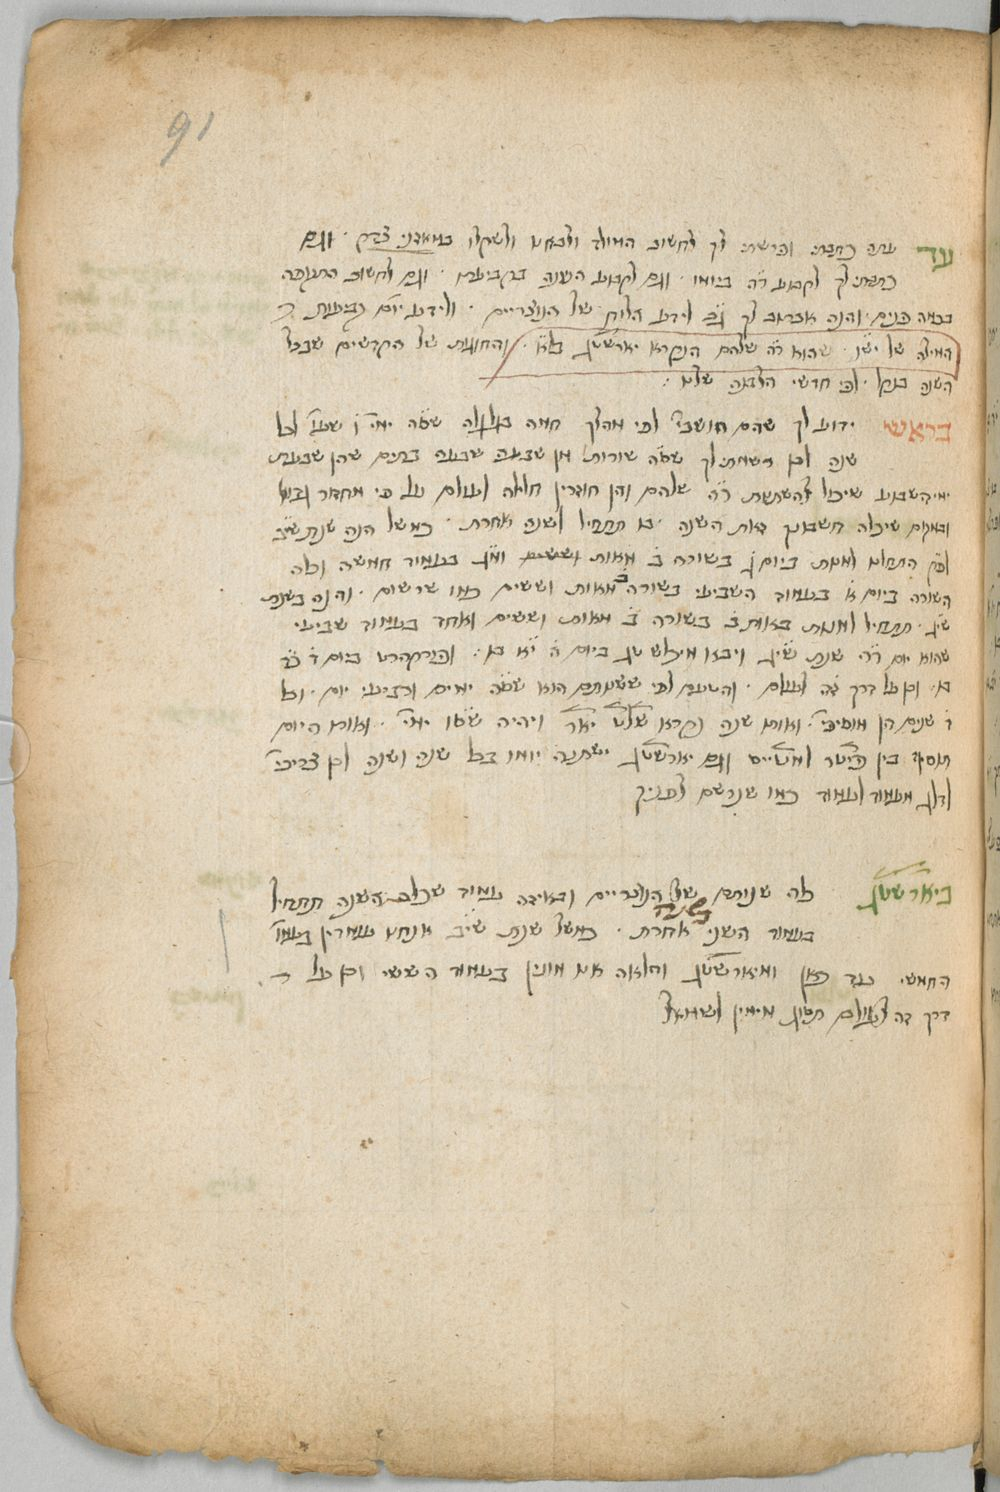 91
עד עתה כתבתי ופרשתי לך לחשוב המולד ולבארו ולשקלו במאזני צדק · וגם
כתבתי לך לקבוע ר״ה ביומו · וגם לקבוע השנה בקביעות · וגם לחשוב התקופה
בכמה פנים · והנה אכתוב לך ג״כ לידע הלוח של הנוצריים · ולידע יום קביעות
המילה של יש״ו · שהוא ר״ה שלהם הנקרא יארשטג בל״א · והחגאות של הקדשים שבכל
השנה בנקל · לפי חדשי הלבנה שלנו :
בראש ידוע לך שהם חושבי׳ לפי מהלך חמה בגלגלה שס״ה ימי׳ ו׳ שעו׳ לכל
שנה לכן רשמתי לך שס״ה שורות מן שבעה שבעה בתים שהן שבעת
ימי השבוע שיכול להשתנות ר״ה שלהם והן חוזרין חלילה לעולם על פי מחזור
ובמקום שיכלה חשבונך זאת השנה · בו תתחיל לשנה אחרת · כמשל הנה שנת שי״ב
לפ״ק התחלנו למנות ביום ו׳ בשורה ב׳ מאות וששים בעמוד חמשה וכלה
השורה ביום א׳ בעמוד השביעי בשורה ב׳ מאות וששים כמו שרשום · והנה בשנת
שי״ג · תתחיל למנות באות ב׳ בשורה ב׳ מאות וששים ואחד בעמוד שביעי
שהוא יום ר״ה שנת שי״ג ויבוא מיכלש טג ביום ה׳ י״א בו ·
בו · וכן על דרך זה לעולם · והטעם לפי ששנותם הוא שס״ה ימים ורביעי יום · וכל
ד׳ שנים הן מוסיפי׳ · ואותו שנה נקרא שלט יאר ויהיה שס״ו ימי׳ · ואותו היום
תוסיף בין פיטר למטייס וגם יארשטג ישתנה יומו בכל שנה ושנה לכן צריכי׳
לדלג מעמוד לעמוד כמו שנרשם לפניך
ביארשטג כלה שנותם של הנוצריים ובאיזה עמוד שכלה השנה תתחיל
בעמוד השני בשנה אחרת · כמשל שנת שי״ב אנחנו עומדין בעמוד
החמשי נגד כאן ומיארשטג והלאה אנו מונין בעמוד הששי וכן על
דרך זה לעולם תסוב מימין לשמאל